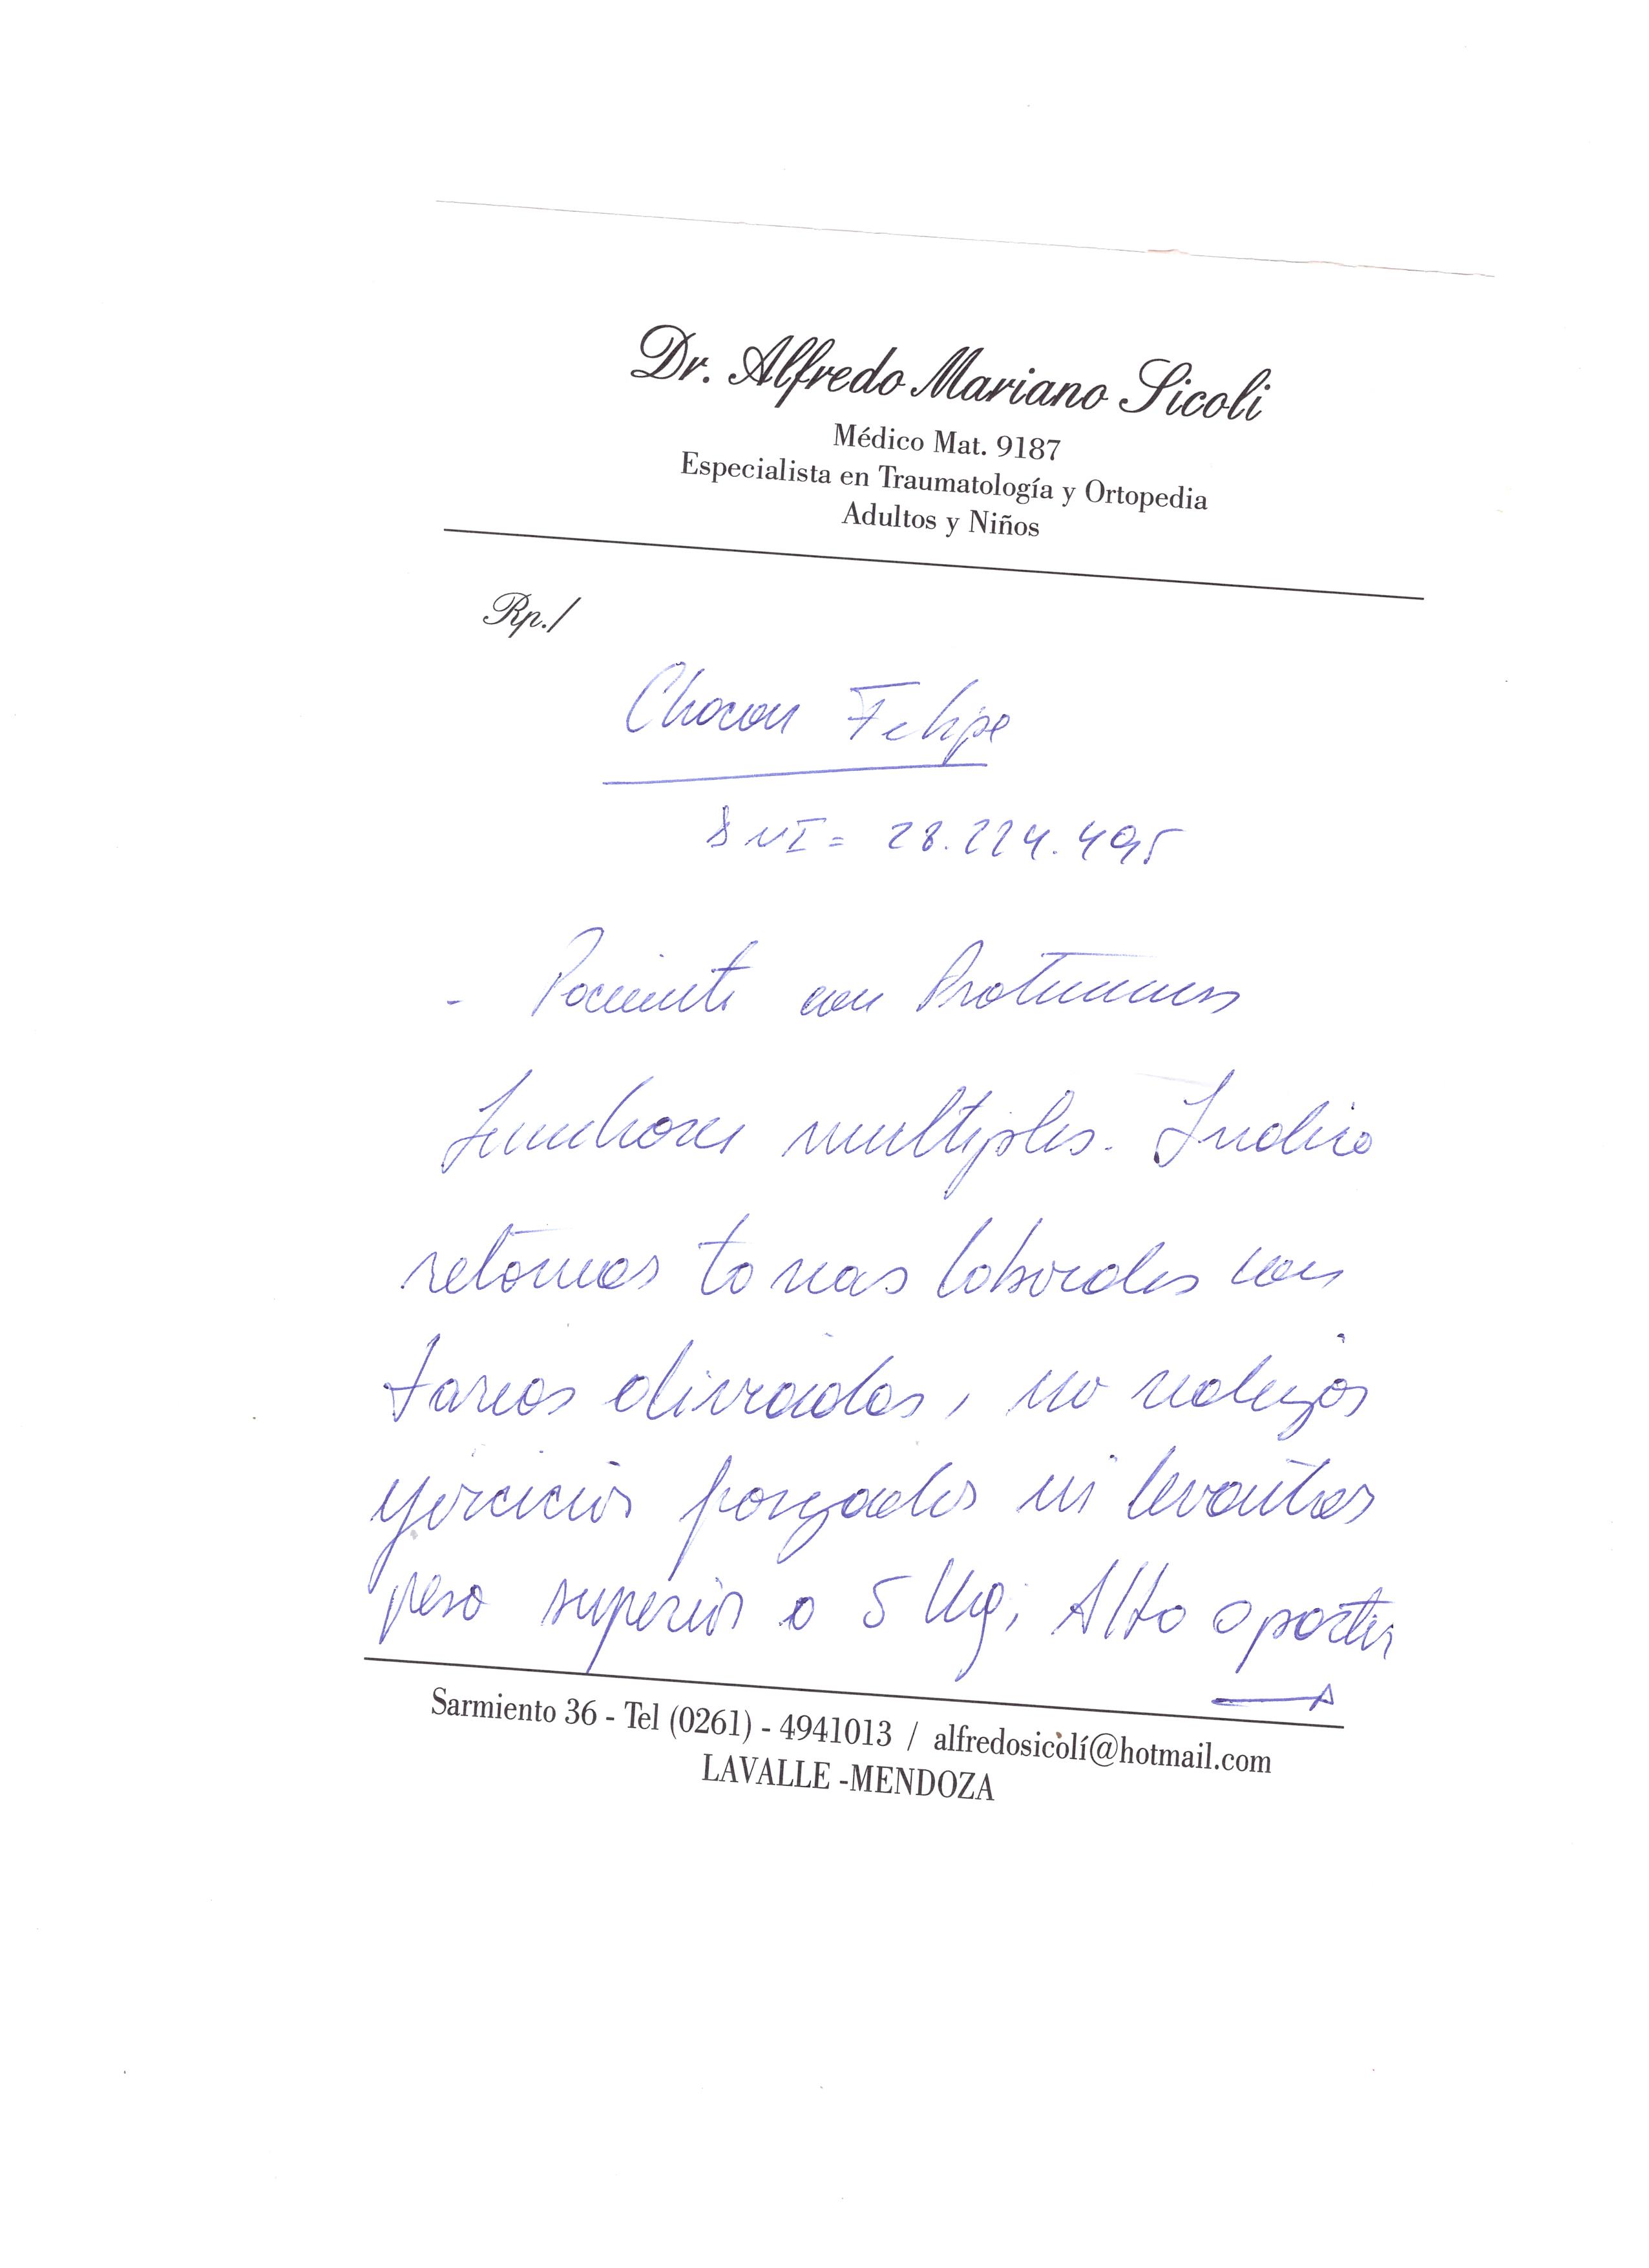 Dr. Alfredo Mariano Sicoli
Médico Mat. 9187
Especialista en Traumatología y Ortopedia
Adultos y Niños
Rp./
Chacon Felipe
DNI = 28.224.495
- Paciente con Protusiones
Lumbares multiples. Indico
retomar tareas laborales con
tareas livianas, no realizar
ejercicios forzados ni levantar
peso superior a 5 Kg. Alta a partir
Sarmiento 36 - Tel (0261) - 4941013 / alfredosicolí@hotmail.com
LAVALLE -MENDOZA